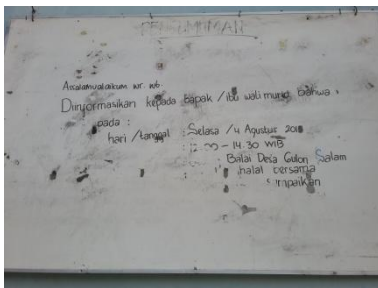 PENGUMUMAN
Assalamualaikum wr. wb.
Diinformasikan kepada bapak / ibu wali murid bahwa,
pada :
hari / tanggal : Selasa / 4 Agustus
- 14.30 WIB
Balai Desa Gulon Salam
halal bersama